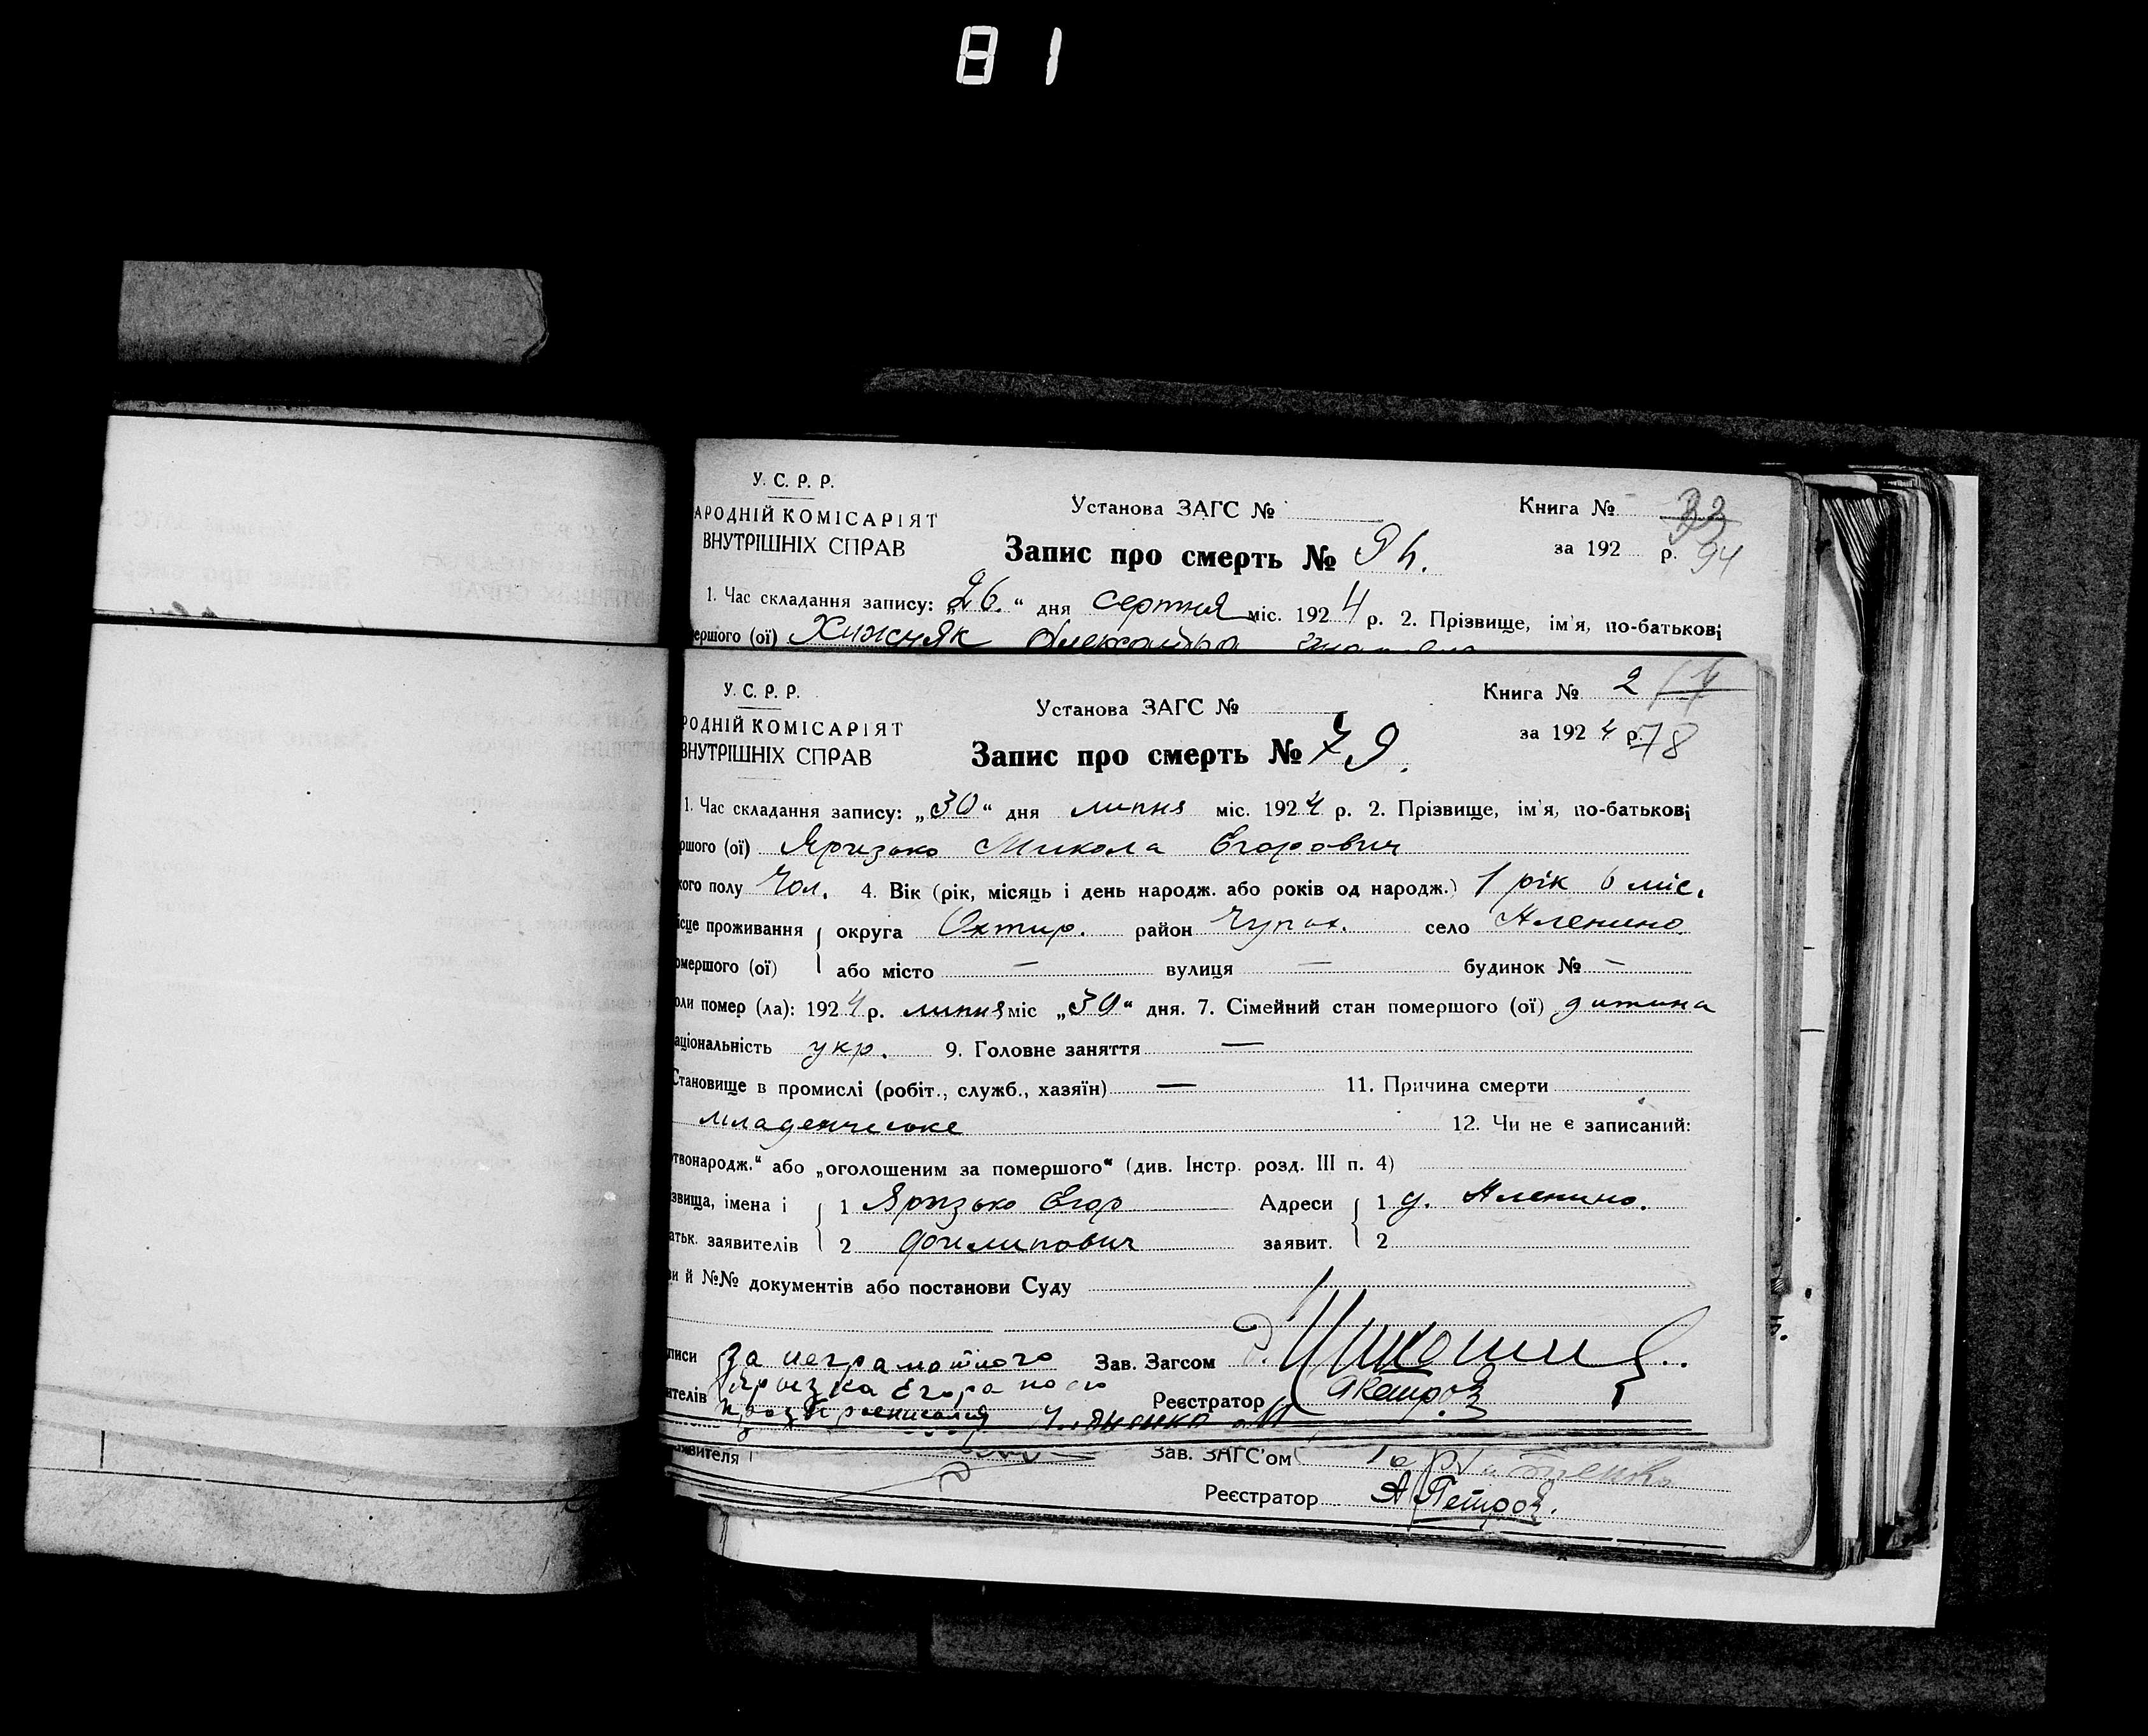 81
У. С. Р. Р.
АРОДНІЙ КОМІСАРІЯТ
ВНУТРІШНІХ СПРАВ
Установа ЗАГС №
Книга № 33
Запис про смерть № 94.
за 192 р. 94
1. Час складання запису: „26.“ дня серпня міс. 1924 р. 2. Прізвище, ім'я, по-батькові
ершого (ої) Хижняк Олександра
У. С. Р. Р.
РОДНІЙ КОМІСАРІЯТ
ВНУТРІШНІХ СПРАВ
Установа ЗАГС №
Книга № 2
Запис про смерть № 79.
за 1924 р. 78
1. Час складання запису: „30“ дня липня міс. 1924 р. 2. Прізвище, ім'я, по-батькові
ршого (ої) Яризько Микола Егорович
кого полу Чол. 4. Вік (рік, місяць і день народж. або років од народж.) 1 рік 6 міс.
ісце проживання округа Охтир. район Чупах. село Аленино
омершого (ої) або місто — вулиця — будинок № —
оли помер (ла): 1924 р. липня міс „30“ дня. 7. Сімейний стан помершого (ої) дитина
аціональність укр. 9. Головне заняття —
Становище в промислі (робіт., служб., хазяїн) — 11. Причина смерти
младенческе 12. Чи не є записаний:
твонародж.“ або „оголошеним за помершого“ (див. Інстр. розд. III п. 4)
звища, імена і 1 Яризько Егор Адреси 1 д. Аленино.
атьк. заявителів 2 Филипович заявит. 2
ви й №№ документів або постанови Суду
писи За неграмотного Зав. Загсом
ителів Ярызка Егора по его Реєстратор АПетров
прозьбі росписался
заявителя Зав. ЗАГС'ом
Реєстратор АПетров.